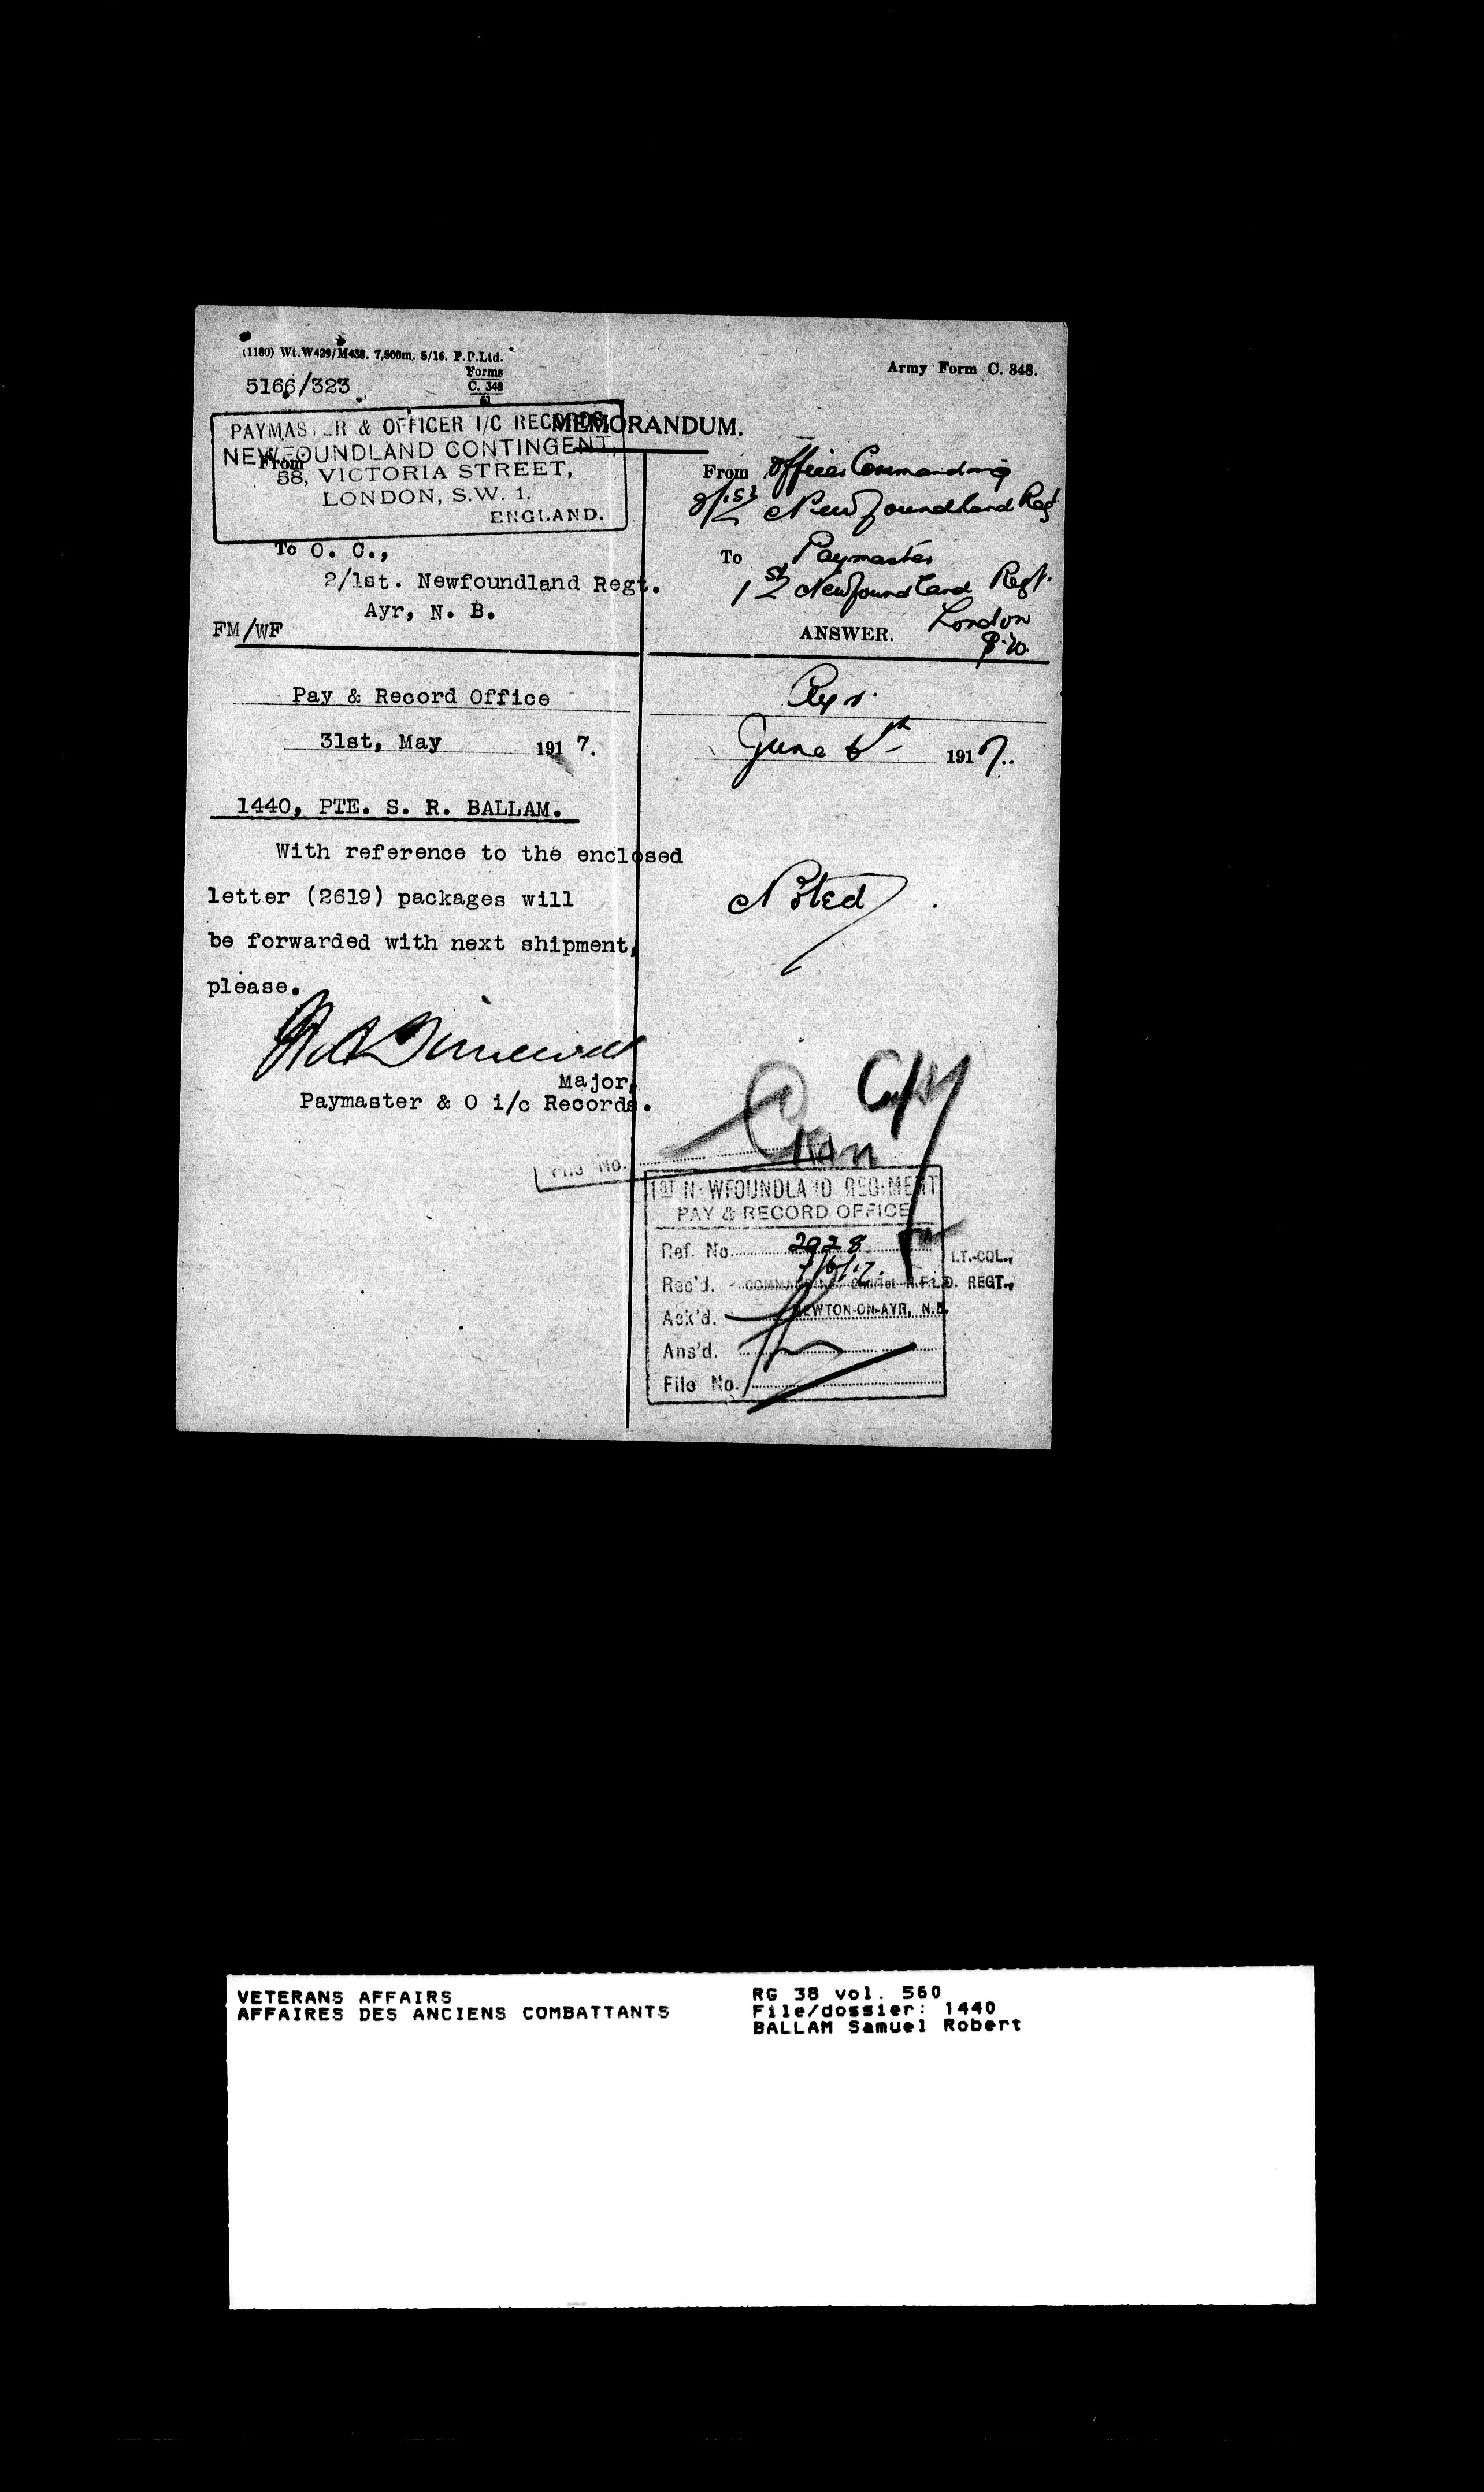 (1180) Wt.W429/M438. 7,500m. 5/16. P.P.Ltd.
Forms
C. 348
61
Army Form C. 348.
5166/323
MEMORANDUM.
PAYMASTER & OFFICER I/C RECORDS
NEWFOUNDLAND CONTINGENT,
From
58, VICTORIA STREET,
LONDON, S.W. 1.
ENGLAND.
To O. C.,
2/1st. Newfoundland Regt.
Ayr, N. B.
FM/WF
Pay & Record Office
31st, May 1917.
1440, PTE. S. R. BALLAM.
With reference to the enclosed
letter (2619) packages will
be forwarded with next shipment,
please.
Major,
Paymaster & O i/c Records.
From Officer Commanding
2/1st Newfoundland Regt
To Paymaster
1st Newfoundland Regt.
London
S.W.
ANSWER.
Ayr.
June 6th 1917.
Noted
File No.
1ST NEWFOUNDLAND REGIMENT
PAY & RECORD OFFICE
Ref. No. 2928
LT.-COL.,
Rec'd. 7/6/17.
COMMANDING 2nd/1st N.F.L.D. REGT.,
Ack'd.
NEWTON-ON-AYR, N.B.
Ans'd.
File No.
VETERANS AFFAIRS
AFFAIRES DES ANCIENS COMBATTANTS
RG 38 vol. 560
File/dossier: 1440
BALLAM Samuel Robert